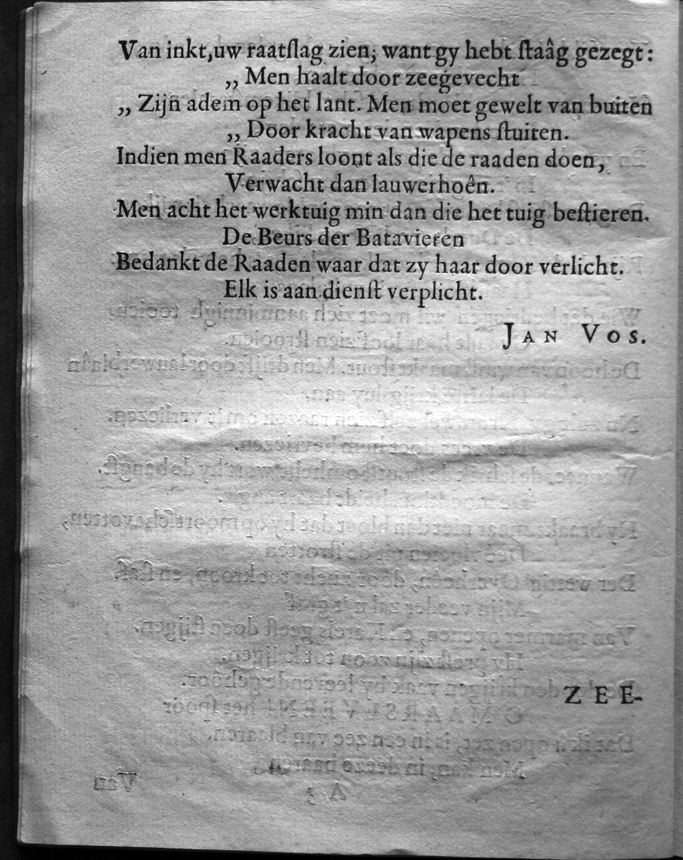 Van inkt, uw raatſlag zien; want gy hebt ſtaâg gezegt:
„ Men haalt door zeegevecht
„ Zijn adem op het lant. Men moet gewelt van buiten
„ Door kracht van wapens ſtuiten.
Indien men Raaders loont als die de raaden doen,
Verwacht dan lauwerhoên.
Men acht het werktuig min dan die het tuig beſtieren.
De Beurs der Batavieren
Bedankt de Raaden waar dat zy haar door verlicht.
Elk is aan dienſt verplicht.
JAN VOS.
ZEE-